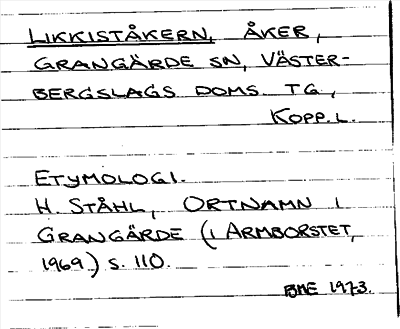 LIKKISTÅKERN, ÅKER,
GRANGÄRDE SN, VÄSTER-
BERGSLAGS DOMS. TG,
KOPP. L.
ETYMOLOGI.
H. STÅHL, ORTNAMN I
GRANGÄRDE (I ARMBORSTET,
1969) S. 110.
1973.